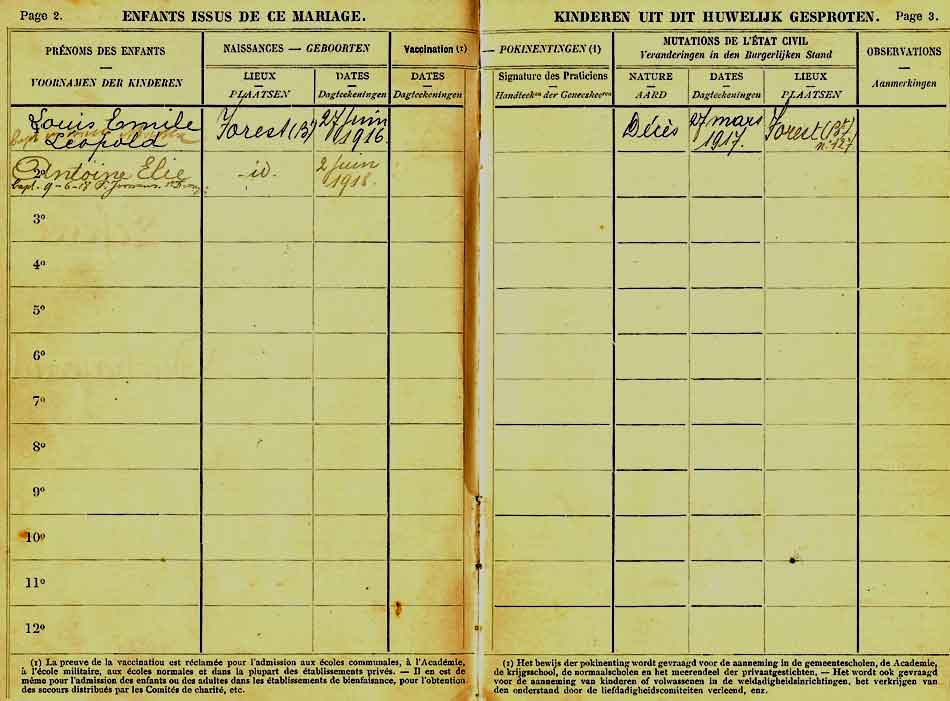 Page 2. ENFANTS ISSUS DE CE MARIAGE.
KINDEREN UIT DIT HUWELIJK GESPROTEN. Page 3.
PRÉNOMS DES ENFANTS
VOORNAMEN DER KINDEREN
NAISSANCES — GEBOORTEN
LIEUX
PLAATSEN
DATES
Dagteekeningen
Vaccination (1)
DATES
Dagteekeningen
POKINENTINGEN (1)
Signature des Praticiens
Handteeken der Geneesheeren
MUTATIONS DE L'ÉTAT CIVIL
Veranderingen in den Burgerlijken Stand
NATURE
AARD
DATES
Dagteekeningen
LIEUX
PLAATSEN
OBSERVATIONS
Aanmerkingen
Louis Emile
Léopold
Forest
27 juin
1916
Décès
27 mars
1917.
Forest
n: 127
2o Antoine Elie
bapt. 9-6-18
id.
2 juin
1918.
3o
4o
5o
6o
7o
8o
9o
10o
11o
12o
(1) La preuve de la vaccination est réclamée pour l'admission aux écoles communales, à l'Académie,
à l'école militaire, aux écoles normales et dans la plupart des établissements privés. — Il en est de
même pour l'admission des enfants ou des adultes dans les établissements de bienfaisance, pour l'obtention
des secours distribués par les Comités de charité, etc.
(1) Het bewijs der pokinenting wordt gevraagd voor de aanneming in de gemeentescholen, de Academie,
de krijgsschool, de normaalscholen en het meerendeel der privaatgestichten. — Het wordt ook gevraagd
voor de aanneming van kinderen of volwassenen in de weldadigheidsinrichtingen, het verkrijgen van
den onderstand door de liefdadigheidscomiteiten verleend, enz.